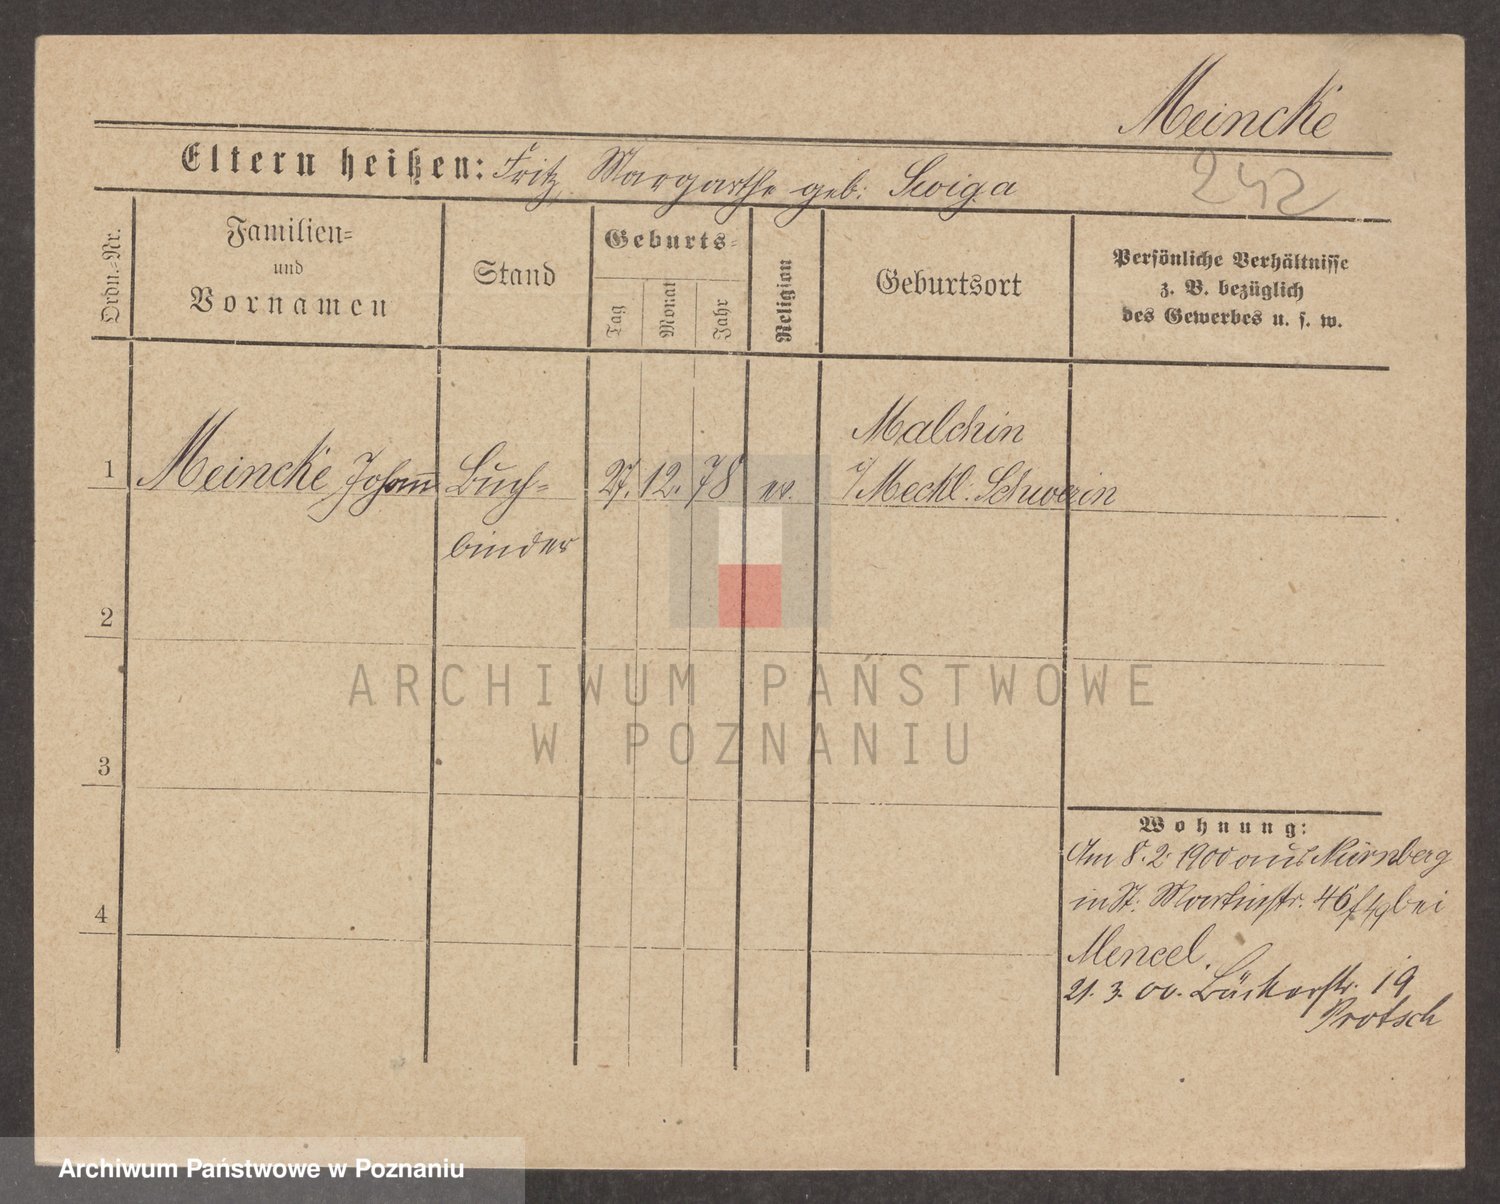 Meincke
242
Eltern heißen: Fritz Margarethe geb: Swiga
Ordn.-Nr.
Familien-
und
Vornamen
Stand
Geburts-
Tag
Monat
Jahr
Religion
Geburtsort
Persönliche Verhältnisse
z. B. bezüglich
des Gewerbes u. s. w.
1 Meincke Johann Buch- 27. 12. 78 ev. Malchin
i/ Meckl. Schwerin
binder
2
3
4
Wohnung:
Am 8. 2. 1900 aus Nürnberg
in St. Martinstr. 46 bei
Mencel.
21. 3. 00. Bäckerstr. 19
Protsch
ARCHIWUM PAŃSTWOWE
W POZNANIU
Archiwum Państwowe w Poznaniu